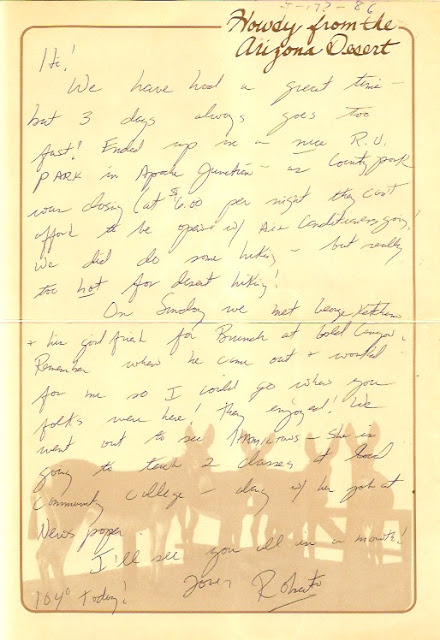 5-17-86
Howdy from the
Arizona Desert
Hi!
We have had a great time -
but 3 days always goes too
fast! Ended up in a nice R.V.
PARK in Apache Junction - as County park
was closing (at $6.00 per night they can't
afford to be open w/ Air Conditioners going!
We did do some hiking - but really
too hot for desert hiking!
On Sunday we met George Ketchum
+ his girl friend for Brunch at Gold Canyon.
Remember when he came out + worked
for me so I could go when you
folks were here! They enjoyed! We
went out to see - She is
going to teach 2 classes at local
Community College - along w/ her job at
News paper.
I'll see you all in a month!
Love, Roberta
104° Today!